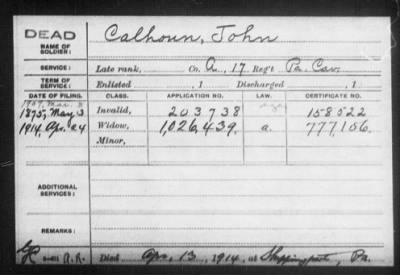 DEAD
NAME OF SOLDIER: Calhoun, John
SERVICE: Late rank, Co. A, 17 Reg't Pa. Cav.
TERM OF SERVICE: Enlisted , 1 Discharged , 1
DATE OF FILING. CLASS. APPLICATION NO. LAW. CERTIFICATE NO.
1907, Mar. 8
1875, May 3 Invalid, 203738 158522
1914, Apr. 24 Widow, 1,026,439. a. 777,156.
Minor,
ADDITIONAL SERVICES:
REMARKS:
Died Apr. 13, 1914, at Shippingport, Pa.